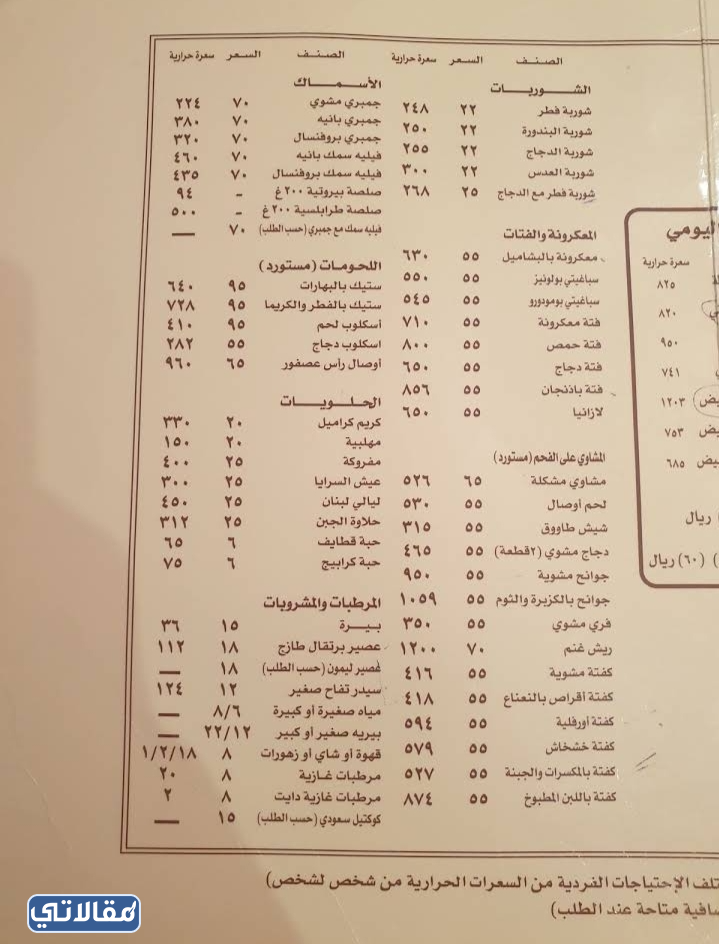 الصنف السعر سعرة حرارية
الشوربات
شوربة فطر ٢٢ ٢٤٨
شوربة البندورة ٢٢ ٢٥٠
شوربة الدجاج ٢٢ ٢٥٥
شوربة العدس ٢٢ ٣٠٠
شوربة فطر مع الدجاج ٢٥ ٢٦٨
المعكرونة والفتات
معكرونة بالبشاميل ٥٥ ٦٣٠
سباغيتي بولونيز ٥٥ ٥٥٠
سباغيتي بومودورو ٥٥ ٥٤٥
فتة معكرونة ٥٥ ٧١٠
فتة حمص ٥٥ ٨٠٠
فتة دجاج ٥٥ ٦٥٠
فتة باذنجان ٥٥ ٨٥٦
لازانيا ٥٥ ٦٥٠
المشاوي على الفحم (مستورد)
مشاوي مشكلة ٦٥ ٥٢٦
لحم أوصال ٥٥ ٥٣٠
شيش طاووق ٥٥ ٣١٥
دجاج مشوي (٢قطعة) ٥٥ ٤٦٥
جوانح مشوية ٥٥ ٩٥٠
جوانح بالكزبرة والثوم ٥٥ ١٠٥٩
فري مشوي ٥٥ ٣٥٠
ريش غنم ٧٠ ١٢٠٠
كفتة مشوية ٥٥ ٤١٦
كفتة أقراص بالنعناع ٥٥ ٤١٨
كفتة أورفلية ٥٥ ٥٩٤
كفتة خشخاش ٥٥ ٥٧٩
كفتة بالمكسرات والجبنة ٥٥ ٥٢٧
كفتة باللبن المطبوخ ٥٥ ٨٧٤
الصنف السعر سعرة حرارية
الأسماك
جمبري مشوي ٧٠ ٢٢٤
جمبري بانيه ٧٠ ٣٨٠
جمبري بروفنسال ٧٠ ٣٢٠
فيليه سمك بانيه ٧٠ ٤٦٠
فيليه سمك بروفنسال ٧٠ ٤٣٥
صلصة بيروتية ٢٠٠ غ - ٩٤
صلصة طرابلسية ٢٠٠ غ - ٥٠٠
فيليه سمك مع جمبري (حسب الطلب) ٧٠ —
اللحومات (مستورد)
ستيك بالبهارات ٩٥ ٦٤٠
ستيك بالفطر والكريما ٩٥ ٧٢٨
أسكلوب لحم ٩٥ ٤١٠
اسكلوب دجاج ٥٥ ٢٨٢
أوصال رأس عصفور ٦٥ ٩٦٠
الحلويات
كريم كراميل ٢٠ ٣٣٠
مهلبية ٢٠ ١٥٠
مفروكة ٢٥ ٤٠٠
عيش السرايا ٢٥ ٣٠٠
ليالي لبنان ٢٥ ٤٥٠
حلاوة الجبن ٢٥ ٣١٢
حبة قطايف ٦ ٦٥
حبة كرابيج ٦ ٧٥
المرطبات والمشروبات
بيرة ١٥ ٣٦
عصير برتقال طازج ١٨ ١١٢
عصير ليمون (حسب الطلب) ١٨ —
سيدر تفاح صغير ١٢ ١٢٤
مياه صغيرة أو كبيرة ٨/٦ —
بيريه صغير أو كبير ٢٢/١٢ —
قهوة أو شاي أو زهورات ٨ ١/٢/١٨
مرطبات غازية ٨ ٢٠
مرطبات غازية دايت ٨ ٢
كوكتيل سعودي (حسب الطلب) ١٥ —
اليومي
سعرة حرارية
٨٢٥
٨٢٠
٩٥٠
٧٤١
١٢٠٣
٧٥٣
٦٨٥
ريال
(٦٠) ريال
الإحتياجات الفردية من السعرات الحرارية من شخص لشخص)
متاحة عند الطلب)
مقالاتي